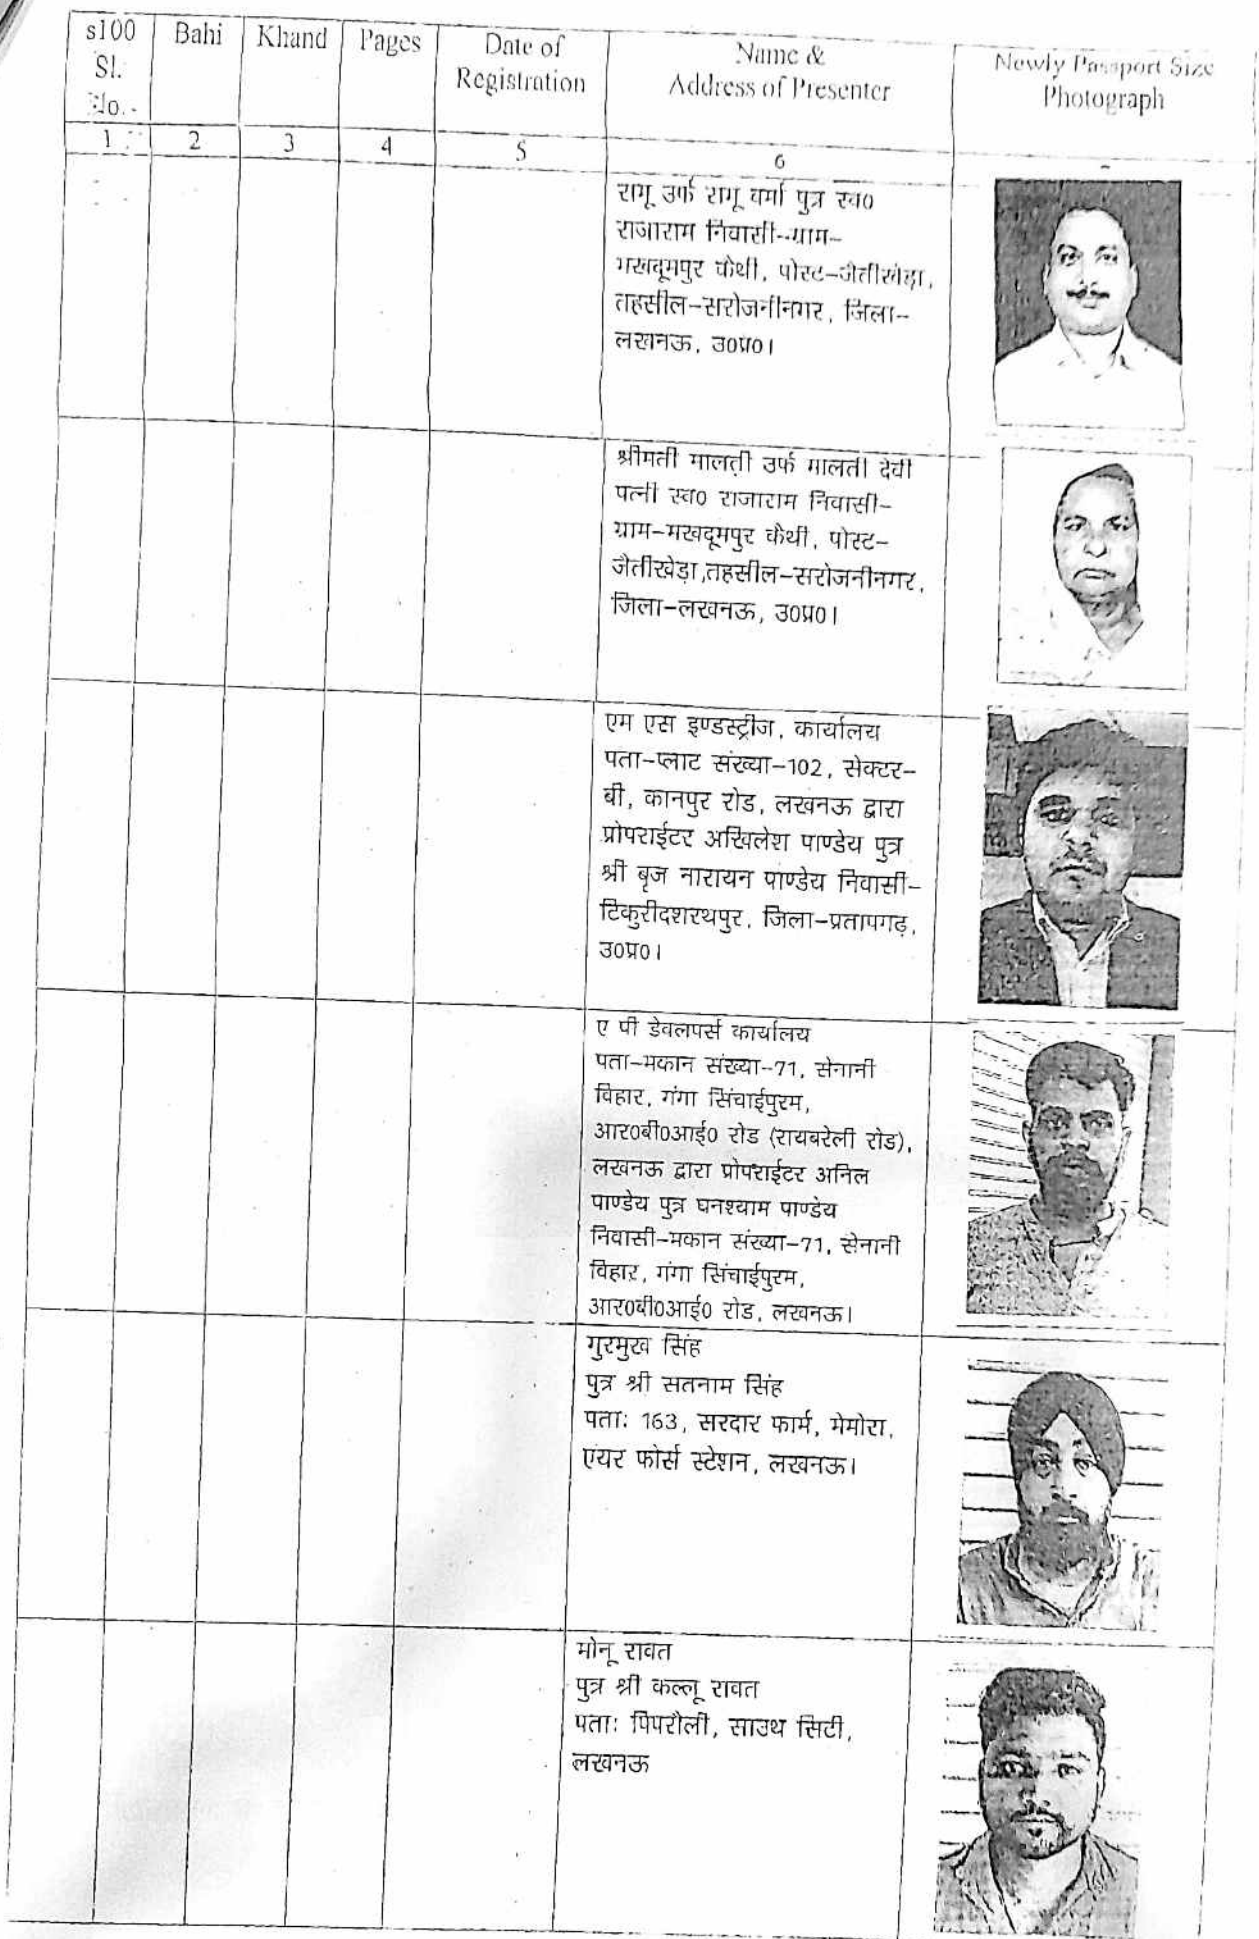 s100 Sl. No.
Bahi
Khand
Pages
Date of
Registration
Name &
Address of Presenter
Newly Passport Size
Photograph
1 2 3 4 5 6
रामू उर्फ रामू वर्मा पुत्र स्व0
राजाराम निवासी-ग्राम-
मखदूमपुर कैथी, पोस्ट-जैतीखेड़ा,
तहसील-सरोजनीनगर, जिला-
लखनऊ, उ0प्र0।
श्रीमती मालती उर्फ मालती देवी
पत्नी स्व0 राजाराम निवासी-
ग्राम-मखदूमपुर कैथी, पोस्ट-
जैतीखेड़ा,तहसील-सरोजनीनगर,
जिला-लखनऊ, उ0प्र0।
एम एस इण्डस्ट्रीज, कार्यालय
पता-प्लाट संख्या-102, सेक्टर-
बी, कानपुर रोड, लखनऊ द्वारा
प्रोपराईटर अखिलेश पाण्डेय पुत्र
श्री बृज नारायन पाण्डेय निवासी-
टिकुरीदशरथपुर, जिला-प्रतापगढ़,
उ0प्र0।
ए पी डेवलपर्स कार्यालय
पता-मकान संख्या-71, सेनानी
विहार, गंगा सिंचाईपुरम,
आर0बी0आई0 रोड (रायबरेली रोड),
लखनऊ द्वारा प्रोपराईटर अनिल
पाण्डेय पुत्र घनश्याम पाण्डेय
निवासी-मकान संख्या-71, सेनानी
विहार, गंगा सिंचाईपुरम,
आर0बी0आई0 रोड, लखनऊ।
गुरमुख सिंह
पुत्र श्री सतनाम सिंह
पता: 163, सरदार फार्म, मेमोरा,
एयर फोर्स स्टेशन, लखनऊ।
मोनू रावत
पुत्र श्री कल्लू रावत
पता: पिपरौली, साउथ सिटी,
लखनऊ